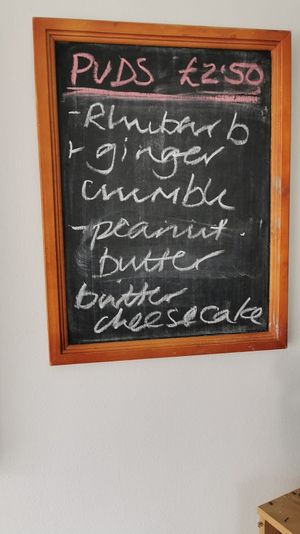 PUDS £2.50
- Rhubarb
+ ginger
crumble
- peanut
butter
butter
cheesecake